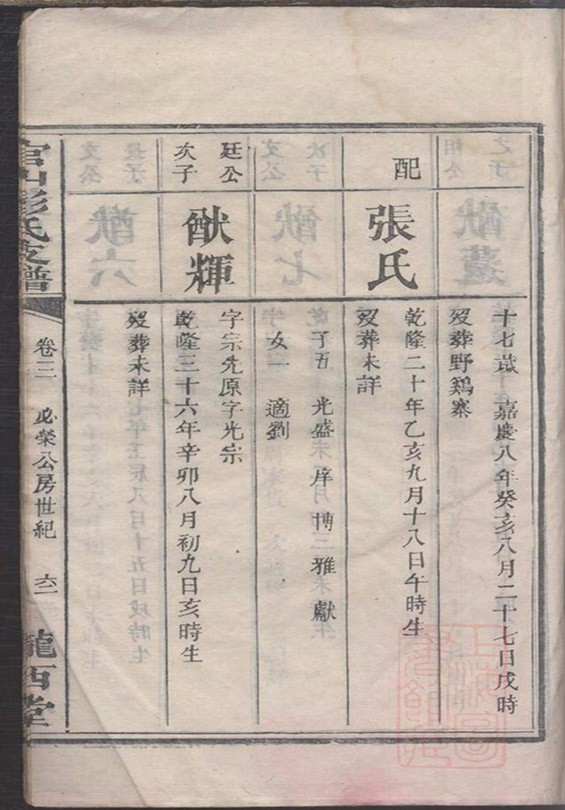 十七歲 嘉慶八年癸亥八月二十七日戌時
歿葬野鷄寨
配 張氏
乾隆二十年乙亥九月十八日午時生
歿葬未詳
子五 光盛 庠 博 三 雅 獻
女一 適劉
廷公
次子
猷輝
字宗先原字光宗
乾隆三十六年辛卯八月初九日亥時生
歿葬未詳
官山彭氏支譜
卷三 必榮公房世紀 六二
隴西堂